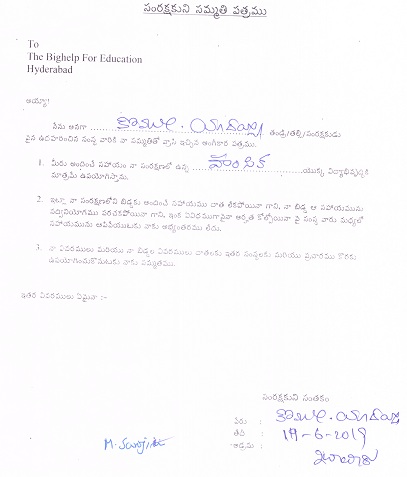 సంరక్షకుని సమ్మతి పత్రము
To
The Bighelp For Education
Hyderabad
అయ్యా!
నేను అనగా కొమల. యాదయ్య తండ్రి/తల్లి/సంరక్షకుడు
పైన ఉదహరించిన సంస్థ వారికి నా సమ్మతితో వ్రాసి ఇచ్చిన అంగీకార పత్రము.
1. మీరు అందించే సహాయం నా సంరక్షణలో ఉన్న హంసిక యొక్క విద్యాభివృద్ధికి
మాత్రమే ఉపయోగిస్తాను.
2. ఇట్లా నా సంరక్షణలోని బిడ్డకు అందించే సహాయము దాత లేకపోయినా గాని, నా బిడ్డ ఆ సహాయమును
సద్వినియోగము పరచకపోయినా గాని, ఇంక ఏవిధముగానైనా అర్హత కోల్పోయినా పై సంస్థ వారు మధ్యలో
సహాయమును ఆపివేయుటకు నాకు అభ్యంతరము లేదు.
3. నా వివరములు మరియు నా బిడ్డల వివరములు దాతలకు ఇతర సంస్థలకు మరియు ప్రచారము కొరకు
ఉపయోగించుకొనుటకు నాకు సమ్మతము.
ఇతర వివరములు ఏమైనా :-
సంరక్షకుని సంతకం
పేరు : కొమల. యాదయ్య
తేదీ : 19-6-2019
అడ్రసు :